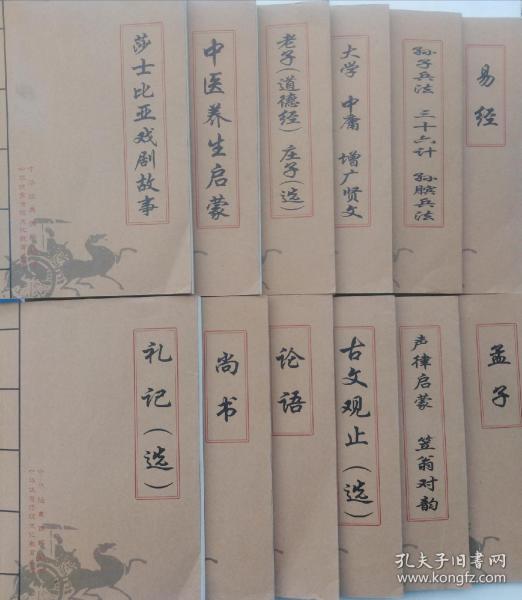 莎士比亚戏剧故事
中医养生启蒙
老子(道德经) 庄子(选)
大学 中庸 增广贤文
孙子兵法 三十六计 孙膑兵法
易经
礼记(选)
尚书
论语
古文观止(选)
声律启蒙 笠翁对韵
孟子
孔夫子旧书网
www.kongfz.com